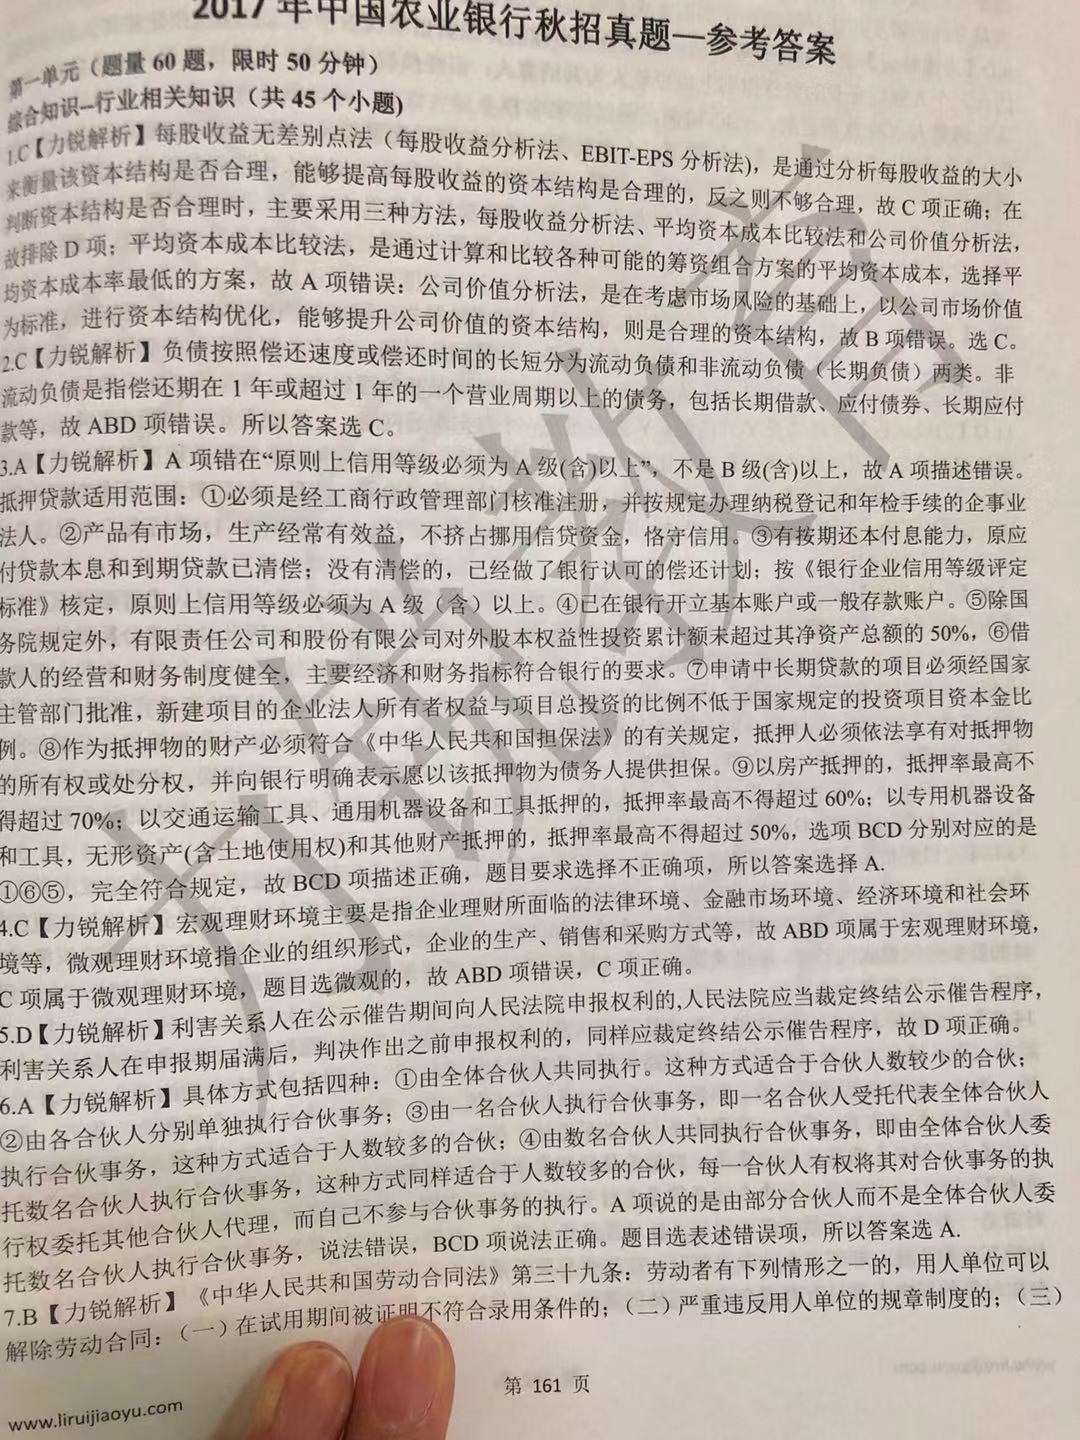 2017年中国农业银行秋招真题—参考答案
第一单元（题量60题，限时50分钟）
综合知识--行业相关知识（共45个小题)
1.C【力锐解析】每股收益无差别点法（每股收益分析法、EBIT-EPS分析法)，是通过分析每股收益的大小
来衡量该资本结构是否合理，能够提高每股收益的资本结构是合理的，反之则不够合理，故C项正确；在
判断资本结构是否合理时，主要采用三种方法，每股收益分析法、平均资本成本比较法和公司价值分析法，
故排除D项；平均资本成本比较法，是通过计算和比较各种可能的筹资组合方案的平均资本成本，选择平
均资本成本率最低的方案，故A项错误：公司价值分析法，是在考虑市场风险的基础上，以公司市场价值
为标准，进行资本结构优化，能够提升公司价值的资本结构，则是合理的资本结构，故B项错误。选C。
2.C【力锐解析】负债按照偿还速度或偿还时间的长短分为流动负债和非流动负债（长期负债）两类。非
流动负债是指偿还期在1年或超过1年的一个营业周期以上的债务，包括长期借款、应付债券、长期应付
款等，故ABD项错误。所以答案选C。
3.A【力锐解析】A项错在“原则上信用等级必须为A级(含)以上”，不是B级(含)以上，故A项描述错误。
抵押贷款适用范围：①必须是经工商行政管理部门核准注册，并按规定办理纳税登记和年检手续的企事业
法人。②产品有市场，生产经常有效益，不挤占挪用信贷资金，恪守信用。③有按期还本付息能力，原应
付贷款本息和到期贷款已清偿；没有清偿的，已经做了银行认可的偿还计划；按《银行企业信用等级评定
标准》核定，原则上信用等级必须为A级（含）以上。④已在银行开立基本账户或一般存款账户。⑤除国
务院规定外，有限责任公司和股份有限公司对外股本权益性投资累计额未超过其净资产总额的50%，⑥借
款人的经营和财务制度健全，主要经济和财务指标符合银行的要求。⑦申请中长期贷款的项目必须经国家
主管部门批准，新建项目的企业法人所有者权益与项目总投资的比例不低于国家规定的投资项目资本金比
例。⑧作为抵押物的财产必须符合《中华人民共和国担保法》的有关规定，抵押人必须依法享有对抵押物
的所有权或处分权，并向银行明确表示愿以该抵押物为债务人提供担保。⑨以房产抵押的，抵押率最高不
得超过70%；以交通运输工具、通用机器设备和工具抵押的，抵押率最高不得超过60%；以专用机器设备
和工具，无形资产(含土地使用权)和其他财产抵押的，抵押率最高不得超过50%，选项BCD分别对应的是
①⑥⑤，完全符合规定，故BCD项描述正确，题目要求选择不正确项，所以答案选择A.
4.C【力锐解析】宏观理财环境主要是指企业理财所面临的法律环境、金融市场环境、经济环境和社会环
境等，微观理财环境指企业的组织形式，企业的生产、销售和采购方式等，故ABD项属于宏观理财环境，
C项属于微观理财环境，题目选微观的，故ABD项错误，C项正确。
5.D【力锐解析】利害关系人在公示催告期间向人民法院申报权利的,人民法院应当裁定终结公示催告程序，
利害关系人在申报期届满后，判决作出之前申报权利的，同样应裁定终结公示催告程序，故D项正确。
6.A【力锐解析】具体方式包括四种：①由全体合伙人共同执行。这种方式适合于合伙人数较少的合伙；
②由各合伙人分别单独执行合伙事务；③由一名合伙人执行合伙事务，即一名合伙人受托代表全体合伙人
执行合伙事务，这种方式适合于人数较多的合伙；④由数名合伙人共同执行合伙事务，即由全体合伙人委
托数名合伙人执行合伙事务，这种方式同样适合于人数较多的合伙，每一合伙人有权将其对合伙事务的执
行权委托其他合伙人代理，而自己不参与合伙事务的执行。A项说的是由部分合伙人而不是全体合伙人委
托数名合伙人执行合伙事务，说法错误，BCD项说法正确。题目选表述错误项，所以答案选A.
7.B【力锐解析】《中华人民共和国劳动合同法》第三十九条：劳动者有下列情形之一的，用人单位可以
解除劳动合同：（一）在试用期间被证明不符合录用条件的；（二）严重违反用人单位的规章制度的；（三）
第 161 页
www.liruijiaoyu.com
力锐教育